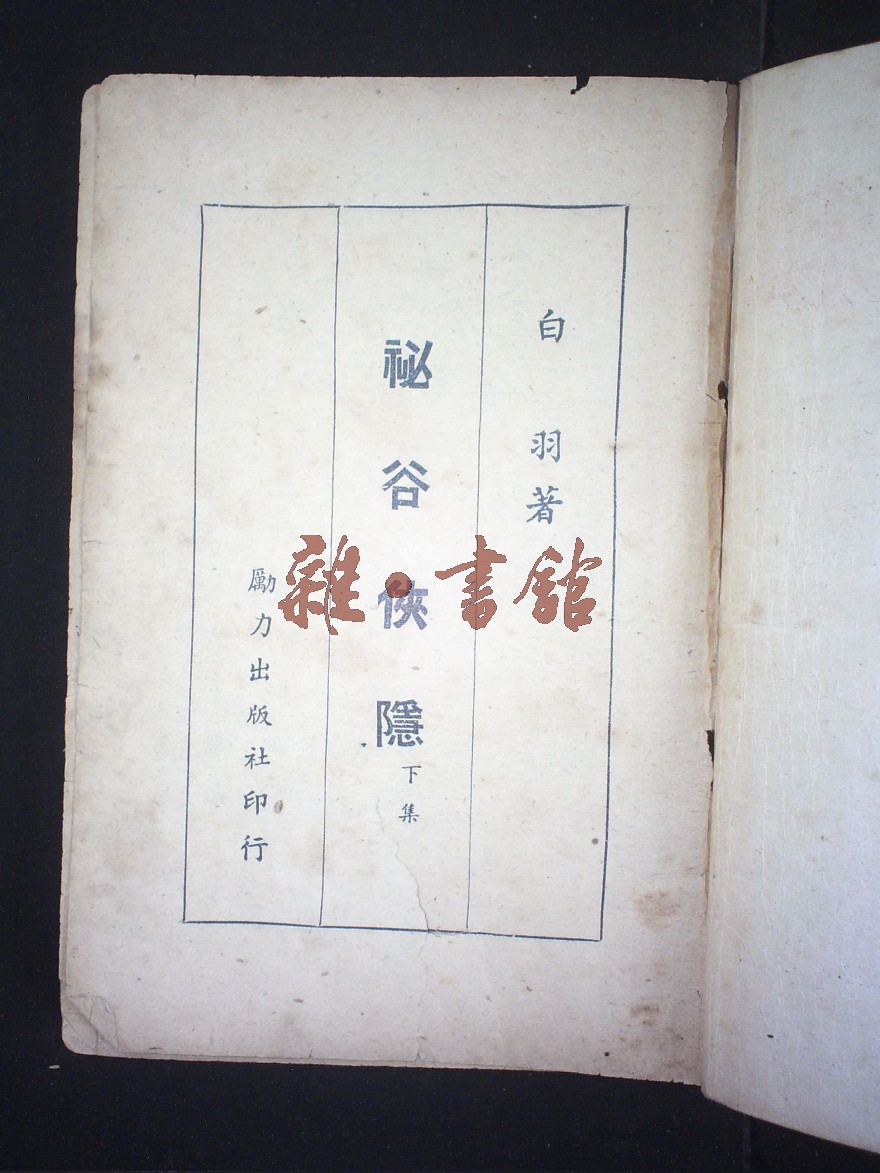 白羽著
祕谷俠隱
下集
勵力出版社印行
雜·書館